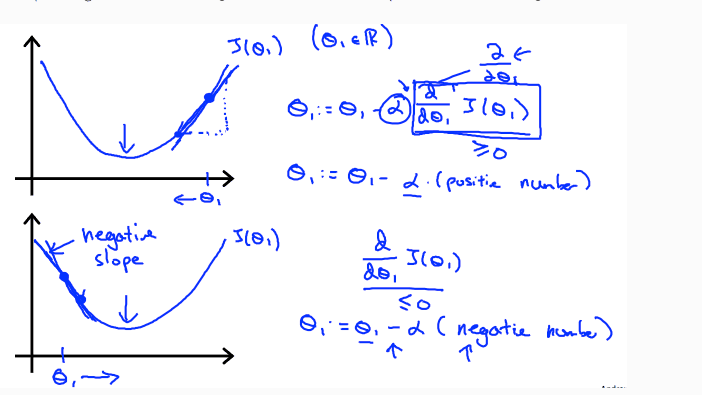 J(θ₁) (θ₁ ∈ ℝ)
∂/∂θ₁ ←
θ₁ := θ₁ - α d/dθ₁ J(θ₁)
≥ 0
θ₁ := θ₁ - α · (positie number)
← θ₁
negative slope
J(θ₁)
d/dθ₁ J(θ₁)
≤ 0
θ₁ := θ₁ - α (negatie number)
θ₁ →